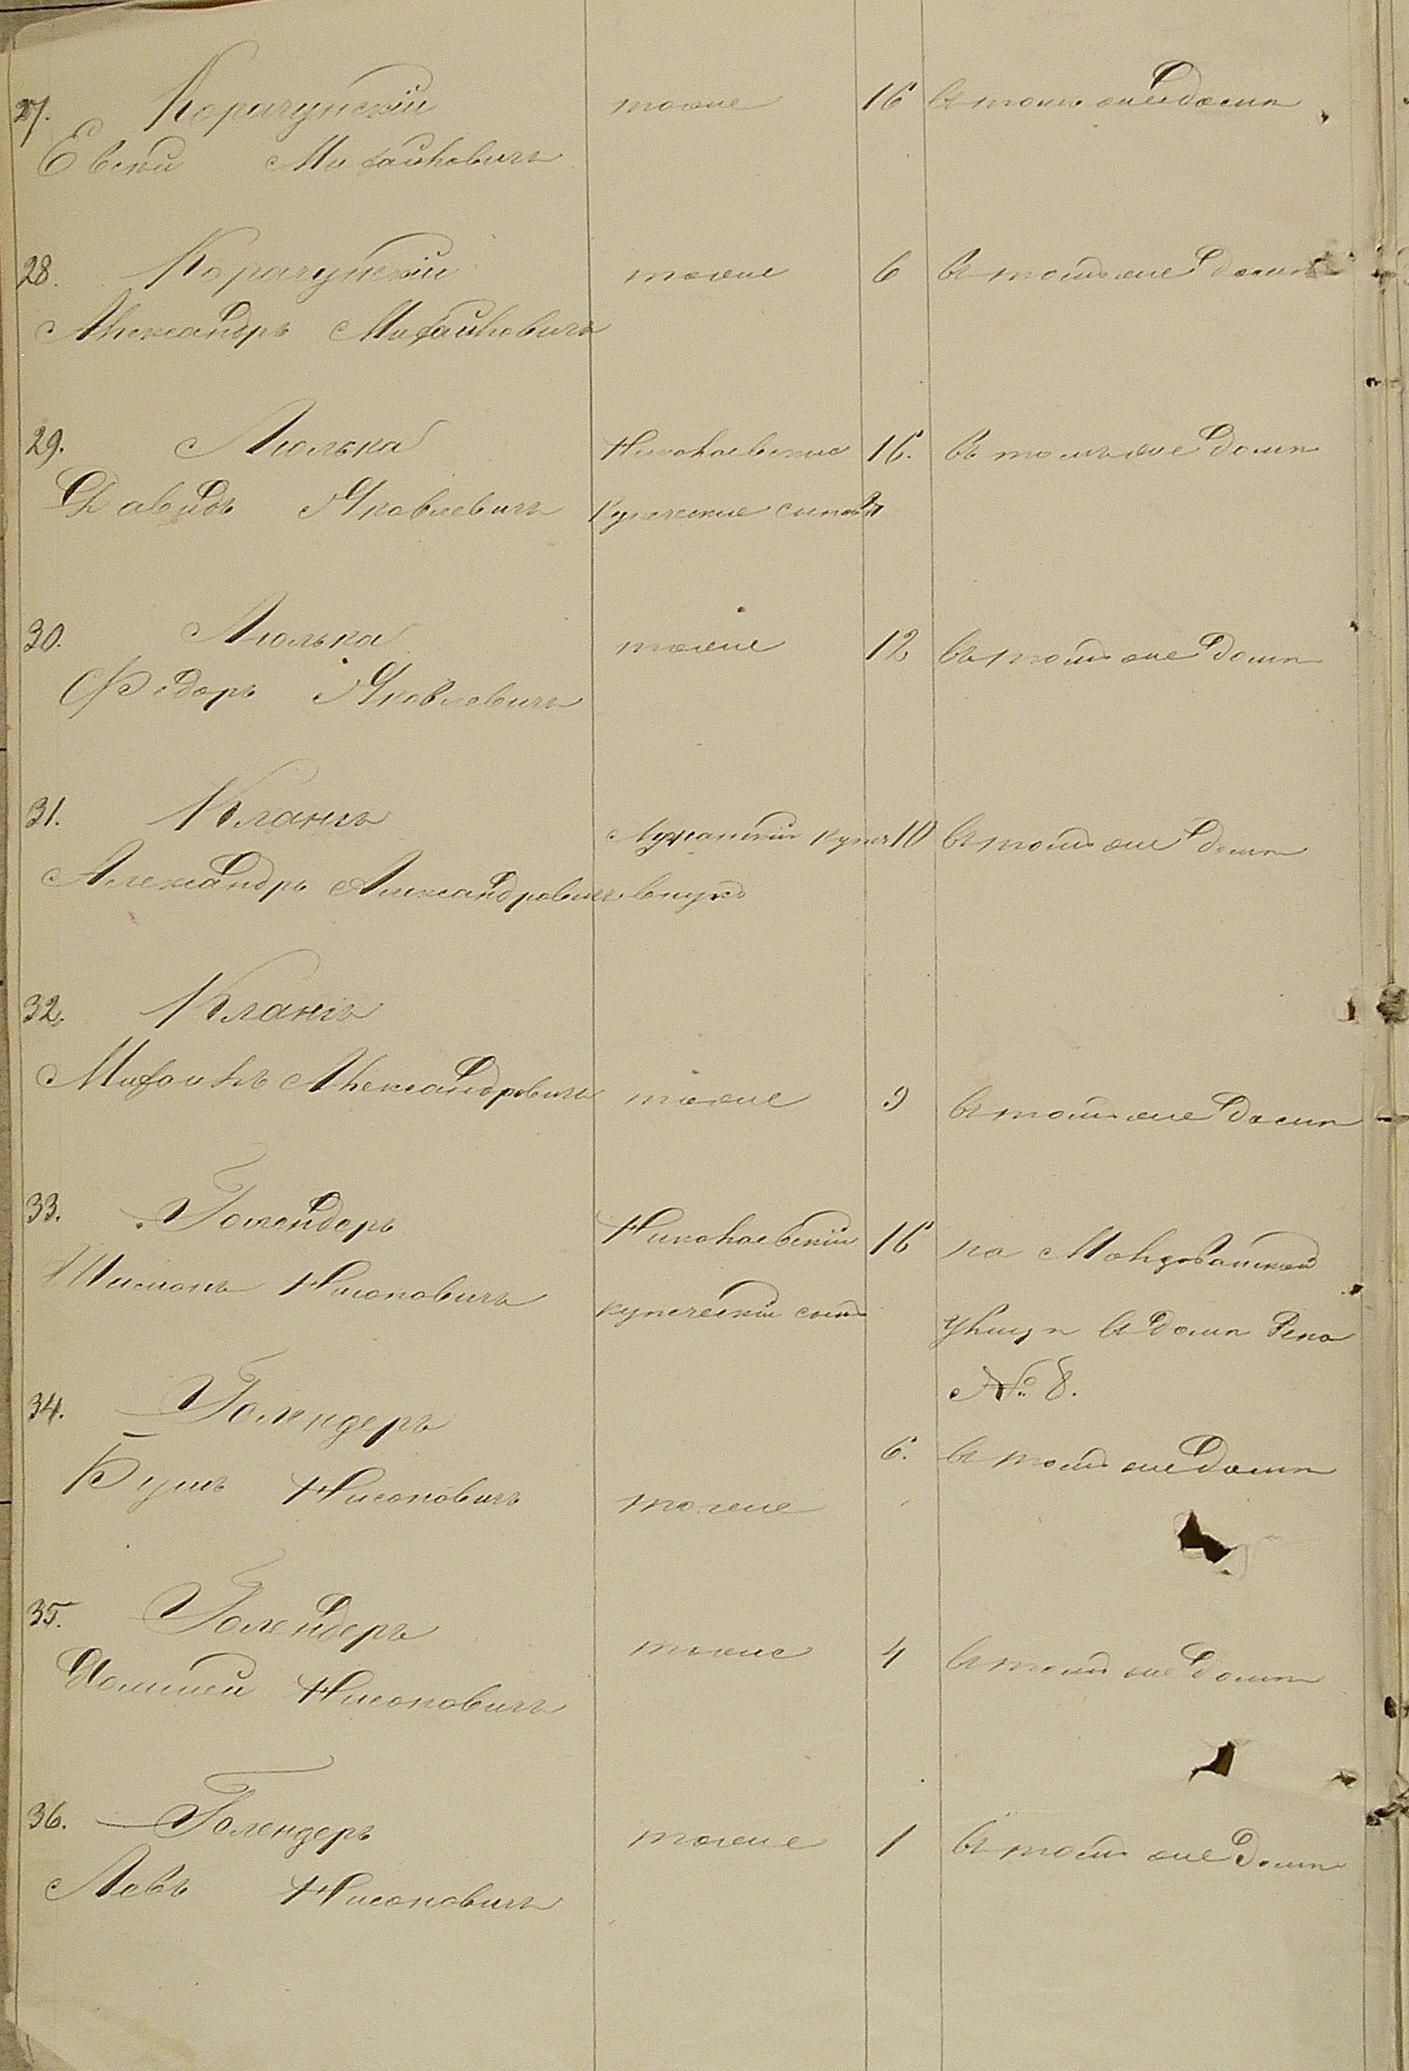 27. Корачунскій тоже 16 въ томъ же домѣ
Евсѣй Михайловичъ
28. Корачунскій тоже 6 въ томъ же домѣ
Александръ Михайловичъ
29. Люлька Николаевские 16. въ томъ же домѣ
Давидъ Яковлевичъ купеческие сыновья
30. Люлька тоже 12 въ томъ же домѣ
Федоръ Яковлевичъ
31. Клангъ купеч 10 въ томъ же домѣ
Александръ Александровичъ внукъ
32. Клангъ
Михаилъ Александровичъ тоже 9 въ томъ же домѣ
33. Голендеръ Николаевскій 16 на Молдованской
Шимонъ Нисоновичъ купеческій сынъ улицѣ въ домѣ
№ 8.
34. Голендеръ 6. въ томъ же домѣ
Нисоновичъ тоже
35. Голендеръ тоже 4 въ томъ же домѣ
Нисоновичъ
36. Голендеръ тоже 1 въ томъ же домѣ
Левъ Нисоновичъ